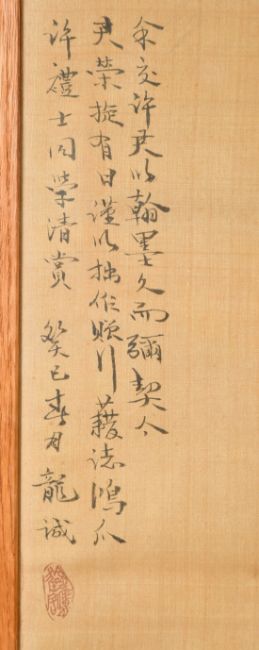 余交許君以翰墨久而彌契今
君榮旋有日謹以拙作贈行藉誌鴻爪
許禮士同學清賞 癸巳春月 龍誠